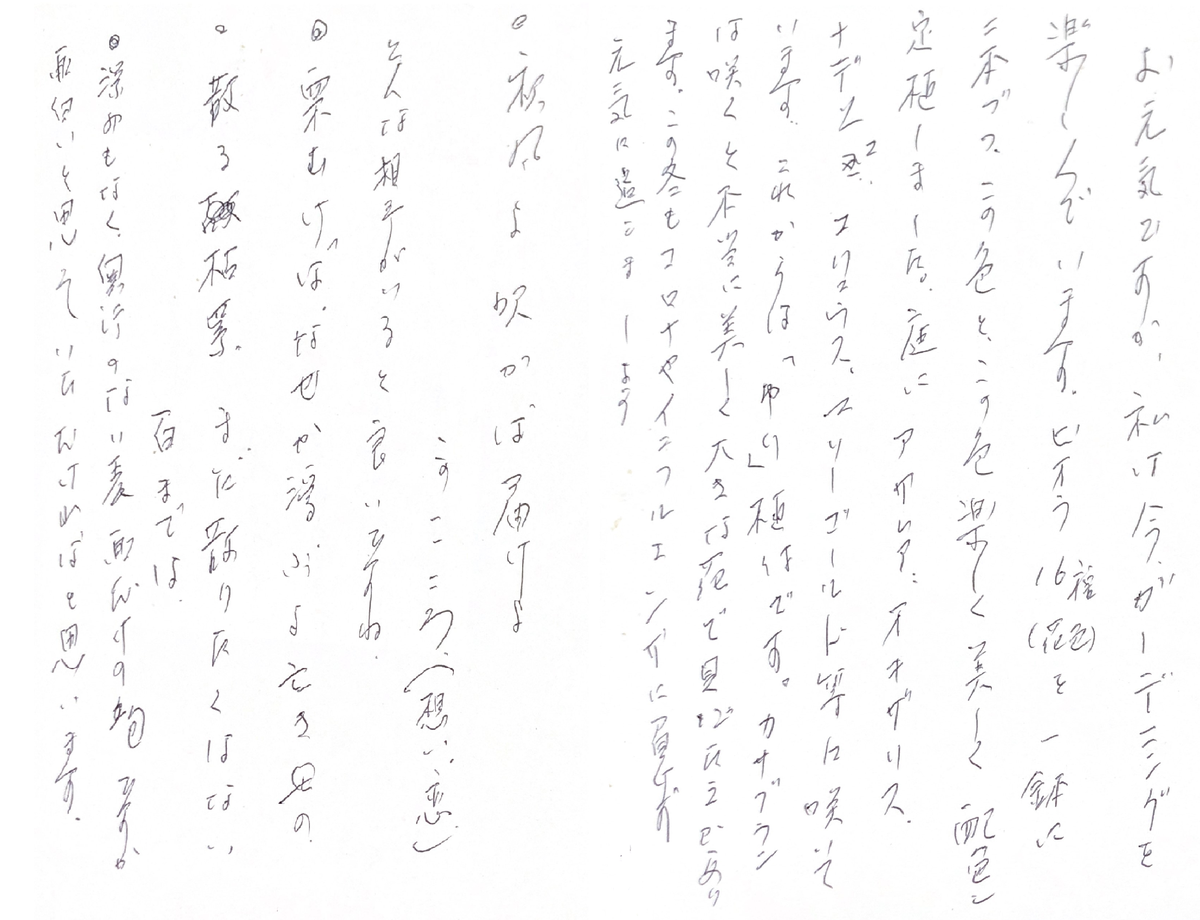 お元気ですか、私は今、ガーデニングを
楽しんでいます。ビオラ16種(花色)を一鉢に
二本づつ、この色と、この色楽しく美しく配色し
定植しました。庭にアザレア、オキザリス、
ナデシコ、マリーゴールド等は咲いて
います。これからは「ゆり」植付です。カサブランカ
は咲くと本当に美しく大きな花で見ごたえがあり
ます。この冬もコロナやインフルエンザに負けず
元気に過ごしましょう
◎秋風よ吹かば届けよ
このこころ、(想い、恋)
そんな相手がいると良いですね。
◎栗むけばなぜか浮ぶよ亡き母の
○散る枯葉まだ散りたくはない
百までは
◎深みもなく、奥行のない表面だけの句ですが
面白いと思っていただければと思います。